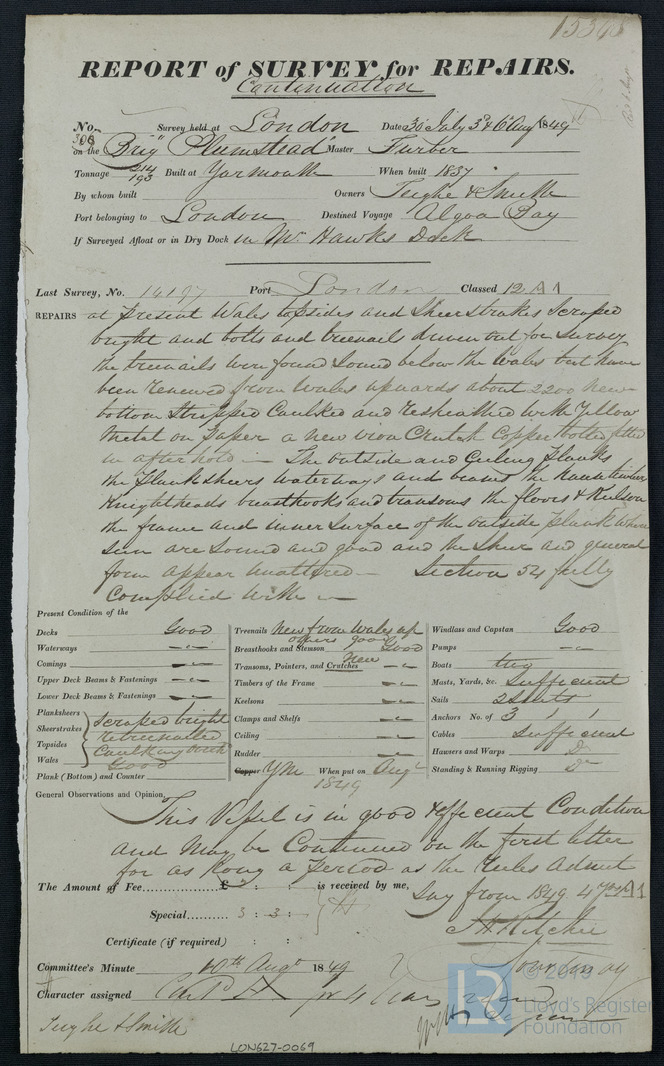 REPORT of SURVEY for REPAIRS.
Continuation
No. 306 Survey held at London Date 30 July 3d & 6 Augt 1849
on the Brig "Plumstead" Master Furber
Tonnage 214 193 Built at Yarmouth When built 1837
By whom built Owners Teighe & Smith
Port belonging to London Destined Voyage Algoa Bay
If Surveyed Afloat or in Dry Dock in Mr. Hawks Dock
Last Survey, No. 14197 Port London Classed 12 A1
REPAIRS at Present Wales topsides and Sheerstrakes Scraped
bright and bolts and treenails driven out for Survey
the treenails were found Sound below the Wales but have
been renewed from Wales upwards about 2200 new
bottom Stripped Caulked and resheathed with Yellow
Metal on Paper a new iron Crutch Copper bolted fitted
in afterhold – The outside and Ceiling planks
the Planksheers Waterways and beams the hawsetimbers
Knightheads breasthooks and transoms the floors & Keelson
the frame and inner surface of the outside plank where
seen are Sound and good and the Sheer and general
form appear unaltered – Section 54 fully
Complied with –
Present Condition of the
Decks Good
Waterways "
Comings "
Upper Deck Beams & Fastenings "
Lower Deck Beams & Fastenings "
Planksheers
Sheerstrakes
Topsides
Wales
Scraped bright
retreenailed
Caulking both
Good
Plank (Bottom) and Counter
Treenails New from Wales up
others good
Breasthooks and Stemson Good
New
Transoms, Pointers, and Crutches "
Timbers of the Frame "
Keelsons "
Clamps and Shelfs "
Ceiling "
Rudder "
Copper YM When put on Augt
1849
Windlass and Capstan Good
Pumps "
Boats two
Masts, Yards, &c. Sufficient
Sails 2 Suits
Anchors No. of 3 , 1 , 1
Cables Sufficient
Hawsers and Warps Do
Standing & Running Rigging Do
General Observations and Opinion,
This Vessel is in good & efficient Condition
and may be Continued on the first letter
for as long a Period as the Rules admit
Say from 1849 4 yrs A1
The Amount of Fee £ : : is received by me,
Special 3 : 3 :
Certificate (if required) : :
Committee's Minute 10th Augt 1849
Character assigned for 4 Years
Teighe & Smith
LON627-0069
© 2019
LR
Lloyd's Register
Foundation